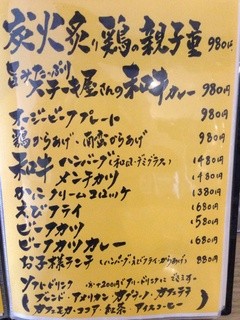 炭火炙り鶏の親子重 980円
旨みたっぷり
ステーキ屋さんの和牛カレー 980円
オージービーフプレート 980
鶏からあげ・南蛮からあげ 980
和牛 ハンバーグ(和風・デミグラス) 1480
メンチカツ 1480
かにクリームコロッケ 1380
えびフライ 1680
ビーフカツ 1580
ビーフカツカレー 1680
お子様ランチ (ハンバーグ・エビフライ・からあげ) 880
ソフトドリンク 200円
ブレンド・アメリカン カプチーノ・カフェラテ
カフェモカ・ココア・紅茶・アイスコーヒー